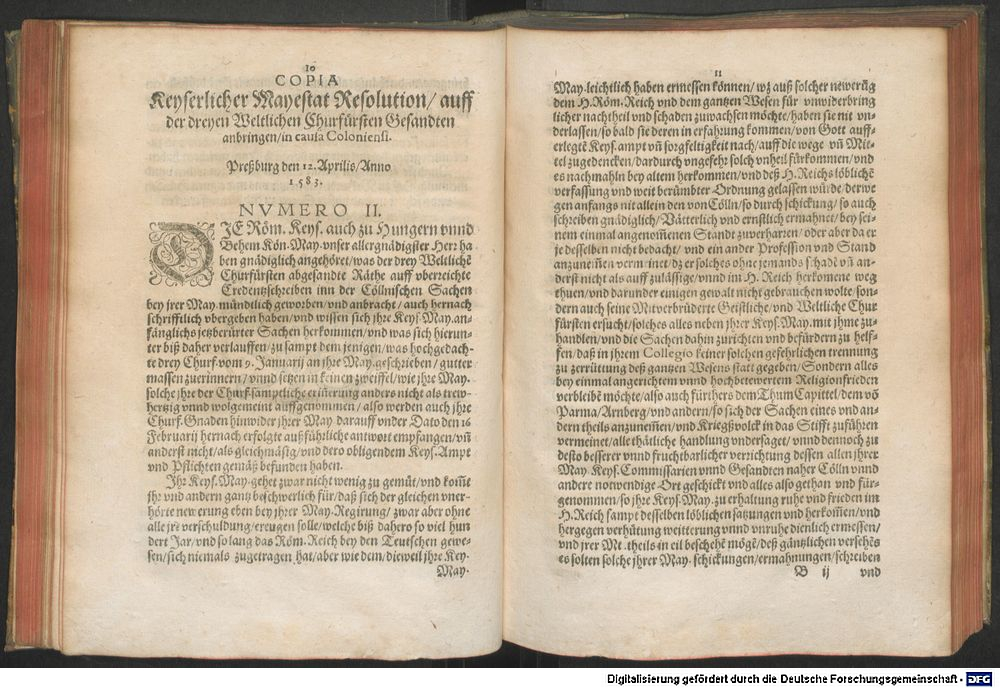 10
COPIA
Keyserlicher Mayestat Resolution/ auff
der dreyen Weltlichen Churfürsten Gesandten
anbringen/ in causa Coloniensi.
Preßburg den 12. Aprilis/ Anno
1583.
NVMERO II.
DIE Röm. Keys. auch zu Hungern vnnd
Behem Kön. May. vnser allergnädigster Herr ha
ben gnädiglich angehöret/ was der drey Weltliche
Churfürsten abgesandte Räthe auff vberreichte
Credentzschreiben inn der Cöllnischen Sachen
bey jrer May. mündtlich geworben/ vnd anbracht/ auch hernach
schrifftlich vbergeben haben/ vnd wissen sich jhre Keys. May. an-
fänglichs jetzberürter Sachen herkommen/ vnd was sich hierun-
ter biß daher verlauffen/ zu sampt dem jenigen/ was hochgedach-
te drey Churf. vom 9. Januarij an jhre May. geschrieben/ gutter
massen zuerinnern/ vnnd setzen in keinen zweiffel/ wie jhre May.
solche jhre der Churf. samptliche erinerung anders nicht als trew-
hertzig vnnd wolgemeint auffgenommen/ also werden auch jhre
Churf. Gnaden hinwider jhrer May darauff vnder Dato den 16
Februarij hernach erfolgte außführliche antwort empfangen/ vñ
anderst nicht/ als gleichmäsig/ vnd dero obligendem Keys. Ampt
vnd Pflichten gemäß befunden haben.
Ihr Keys. May. gehet zwar nicht wenig zu gemüt/ vnd kom̃t
jhr vnd andern gantz beschwerlich für/ daß sich der gleichen vner-
hörte newerung eben bey jhrer May. Regirung/ zwar aber ohne
alle jre verschuldung/ ereugen solle/ welche biß dahero so viel hun
dert Jar/ vnd so lang das Röm. Reich bey den Teutschen gewe-
sen/ sich niemals zugetragen hat/ aber wie dem/ dieweil jhre Key.
May.
11
May. leichtlich haben ermessen können/ wz auß solcher newerũg
dem H. Röm. Reich vnd dem gantzen Wesen für vnwiderbring
licher nachtheil vnd schaden zuwachsen möchte/ haben sie nit vn-
derlassen/ so bald sie deren in erfahrung kommen/ von Gott auff-
erlegtẽ Keys. ampt vñ sorgfeltigkeit nach/ auff die wege vñ Mit-
tel zugedencken/ dardurch vngefehr solch vnheil fürkommen/ vnd
es nachmahln bey altem herkommen/ vnd deß H. Reichs löblichẽ
verfassung vnd weit berümbter Ordnung gelassen würde/ derwe
gen anfangs nit allein den von Cölln/ so durch schickung/ so auch
schreiben gnädiglich/ Vätterlich vnd ernstlich ermahnet/ bey sei-
nem einmal angenom̃enen Standt zuverharren/ oder aber da er
je desselben nicht bedacht/ vnd ein ander Profession vnd Stand
anzunem̃en vermeinet/ dz er solches ohne jemands schadẽ vñ an-
derst nicht als auff zulässige/ vnnd im H. Reich herkomene weg
thuen/ vnd darunder einigen gewalt nicht gebrauchen wolte/ son-
dern auch seine Mitverbrüderte Geistliche/ vnd Weltliche Chur
fürsten ersucht/ solches alles neben jhrer Keys. May. mit jhme zu-
handlen/ vnd die Sachen dahin zurichten vnd befürdern zu helf-
fen/ daß in jhrem Collegio keiner solchen gefehrlichen trennung
zu zerrüttung deß gantzen Wesens statt gegeben/ Sondern alles
bey einmal angerichtem vnnd hochbetewertem Religionfrieden
verbleibẽ möchte/ also auch fürthers dem Thum Capittel/ dem võ
Parma/ Arnberg/ vnd andern/ so sich der Sachen eines vnd an-
dern theils anzunem̃en/ vnd Kriegßvolck in das Stifft zuführen
vermeinet/ alle thätliche handlung vndersaget/ vnnd dennoch zu
desto besserer vnnd fruchtbarlicher verrichtung dessen allen jhrer
May. Keys. Commissarien vnnd Gesandten naher Cölln vnnd
andere notwendige Ort geschickt vnd alles also gethan vnd für-
genommen/ so jhre Keys. May. zu erhaltung ruhe vnd frieden im
H. Reich sampt desselben löblichen satzungen vnd herkom̃en/ vnd
hergegen verhütung weitterung vnnd vnruhe dienlich ermessen/
vnd jrer Mt. theils in eil beschehẽ mögẽ/ deß gäntzlichen versehẽs
es solten solche jhrer May. schickungen/ ermahnungen/ schreiben
B ij vnd
Digitalisierung gefördert durch die Deutsche Forschungsgemeinschaft - DFG